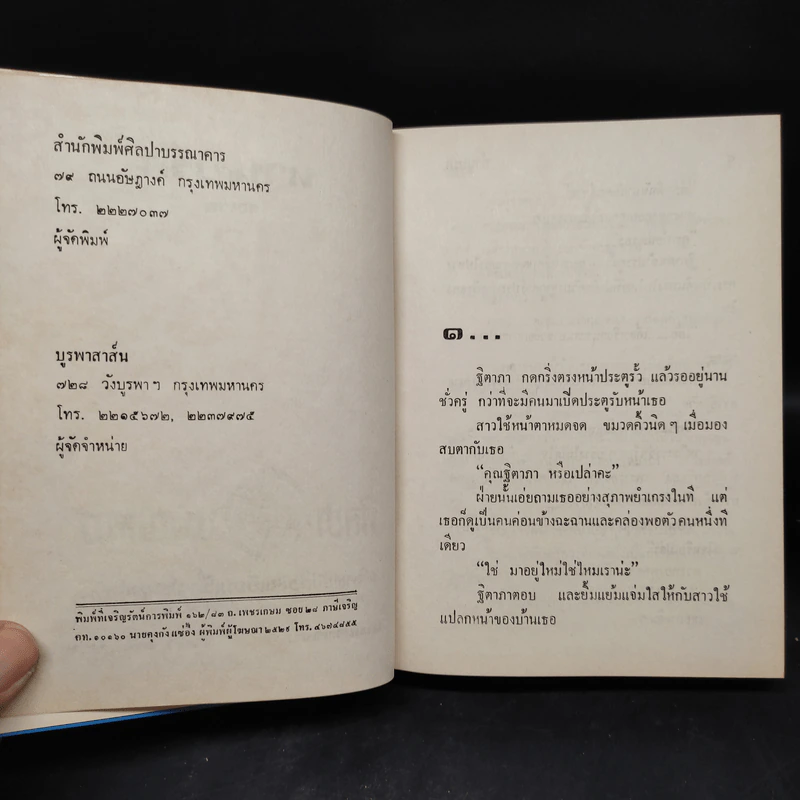 สำนักพิมพ์ศิลปาบรรณาคาร
๗๙ ถนนอัษฎางค์ กรุงเทพมหานคร
โทร. ๒๒๒๗๐๓๗
ผู้จัดพิมพ์
บูรพาสาส์น
๗๒๘ วังบูรพา ฯ กรุงเทพมหานคร
โทร. ๒๒๑๕๖๗๒, ๒๒๓๗๙๗๕
ผู้จัดจำหน่าย
พิมพ์ที่เจริญรัตน์การพิมพ์ ๑๖๒/๘๓ ถ. เพชรเกษม ซอย ๒๘ ภาษีเจริญ
กท. ๑๐๑๖๐ นายคุงกัง แซ่อึ้ง ผู้พิมพ์ผู้โฆษณา ๒๕๒๙ โทร. ๔๖๗๔๘๕๕
๑...
ฐิตาภา กดกริ่งตรงหน้าประตูรั้ว แล้วรออยู่นาน
ชั่วครู่ กว่าที่จะมีคนมาเปิดประตูรับหน้าเธอ
สาวใช้หน้าตาหมดจด ขมวดคิ้วนิด ๆ เมื่อมอง
สบตากับเธอ
“คุณฐิตาภา หรือเปล่าคะ”
ฝ่ายนั้นเอ่ยถามเธออย่างสุภาพยำเกรงในที แต่
เธอก็ดูเป็นคนค่อนข้างฉะฉานและคล่องพอตัวคนหนึ่งที
เดียว
“ใช่ มาอยู่ใหม่ใช่ไหมเราน่ะ”
ฐิตาภาตอบ และยิ้มแย้มแจ่มใสให้กับสาวใช้
แปลกหน้าของบ้านเธอ